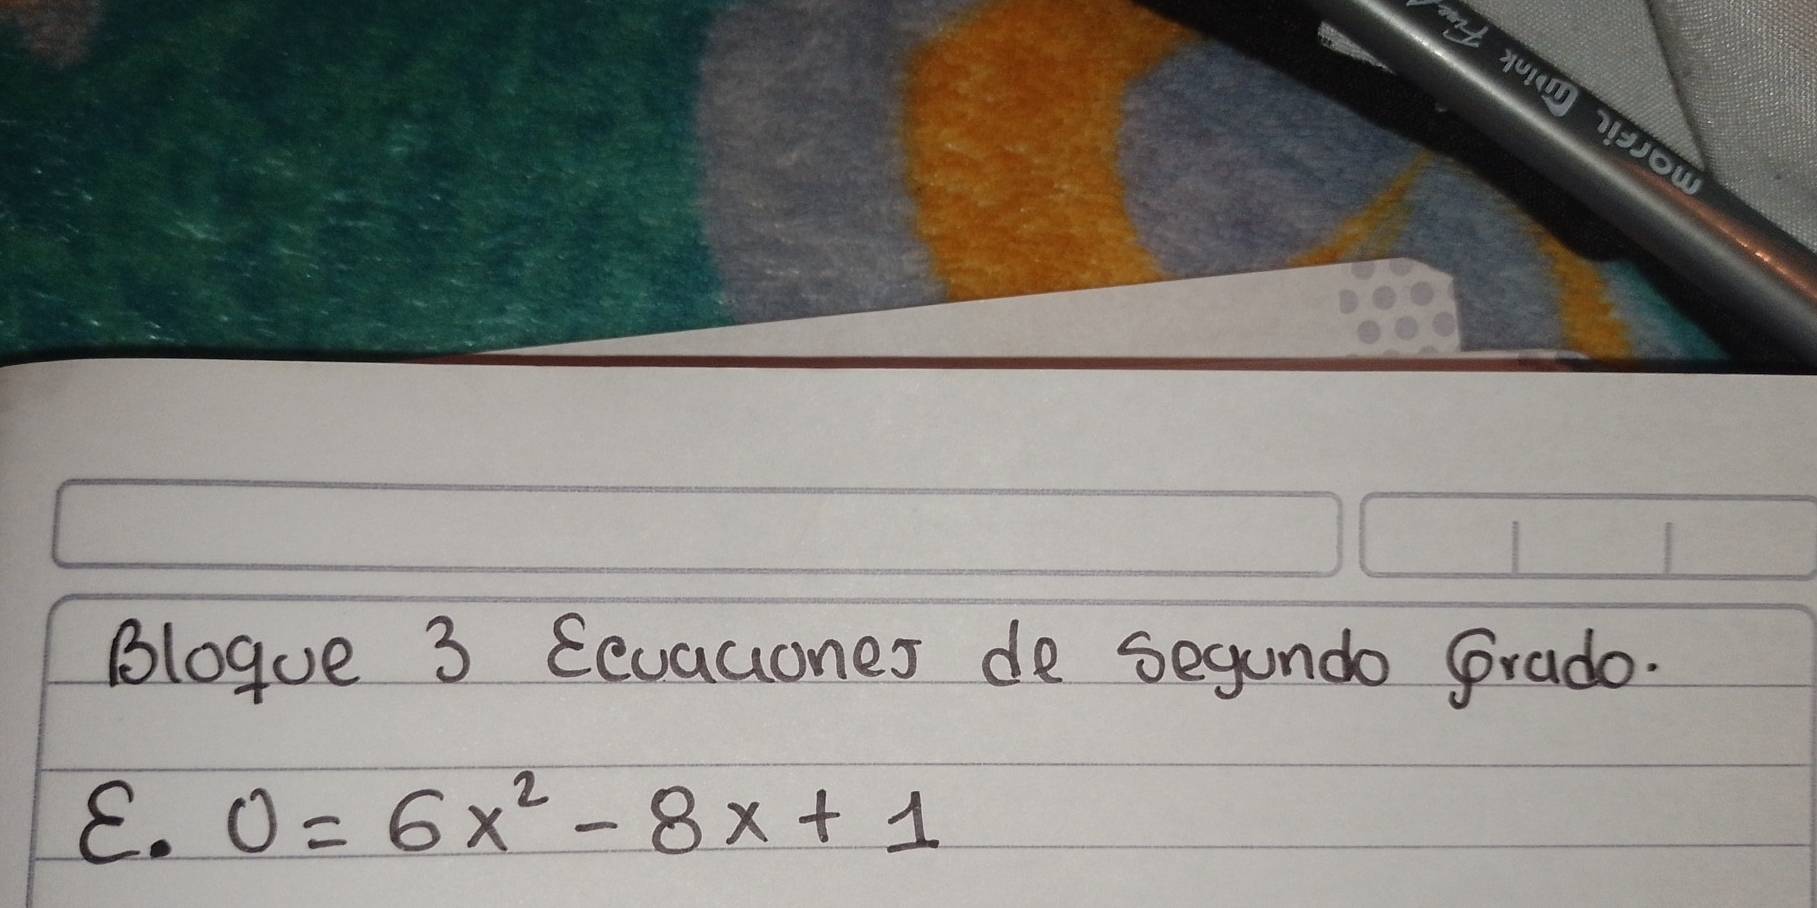 marfil Wink Fine
Bloque 3 Ecuaciones de Segundo Grado.
E. 0 = 6x² - 8x + 1